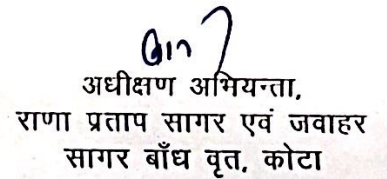 अधीक्षण अभियन्ता,
राणा प्रताप सागर एवं जवाहर
सागर बाँध वृत, कोटा